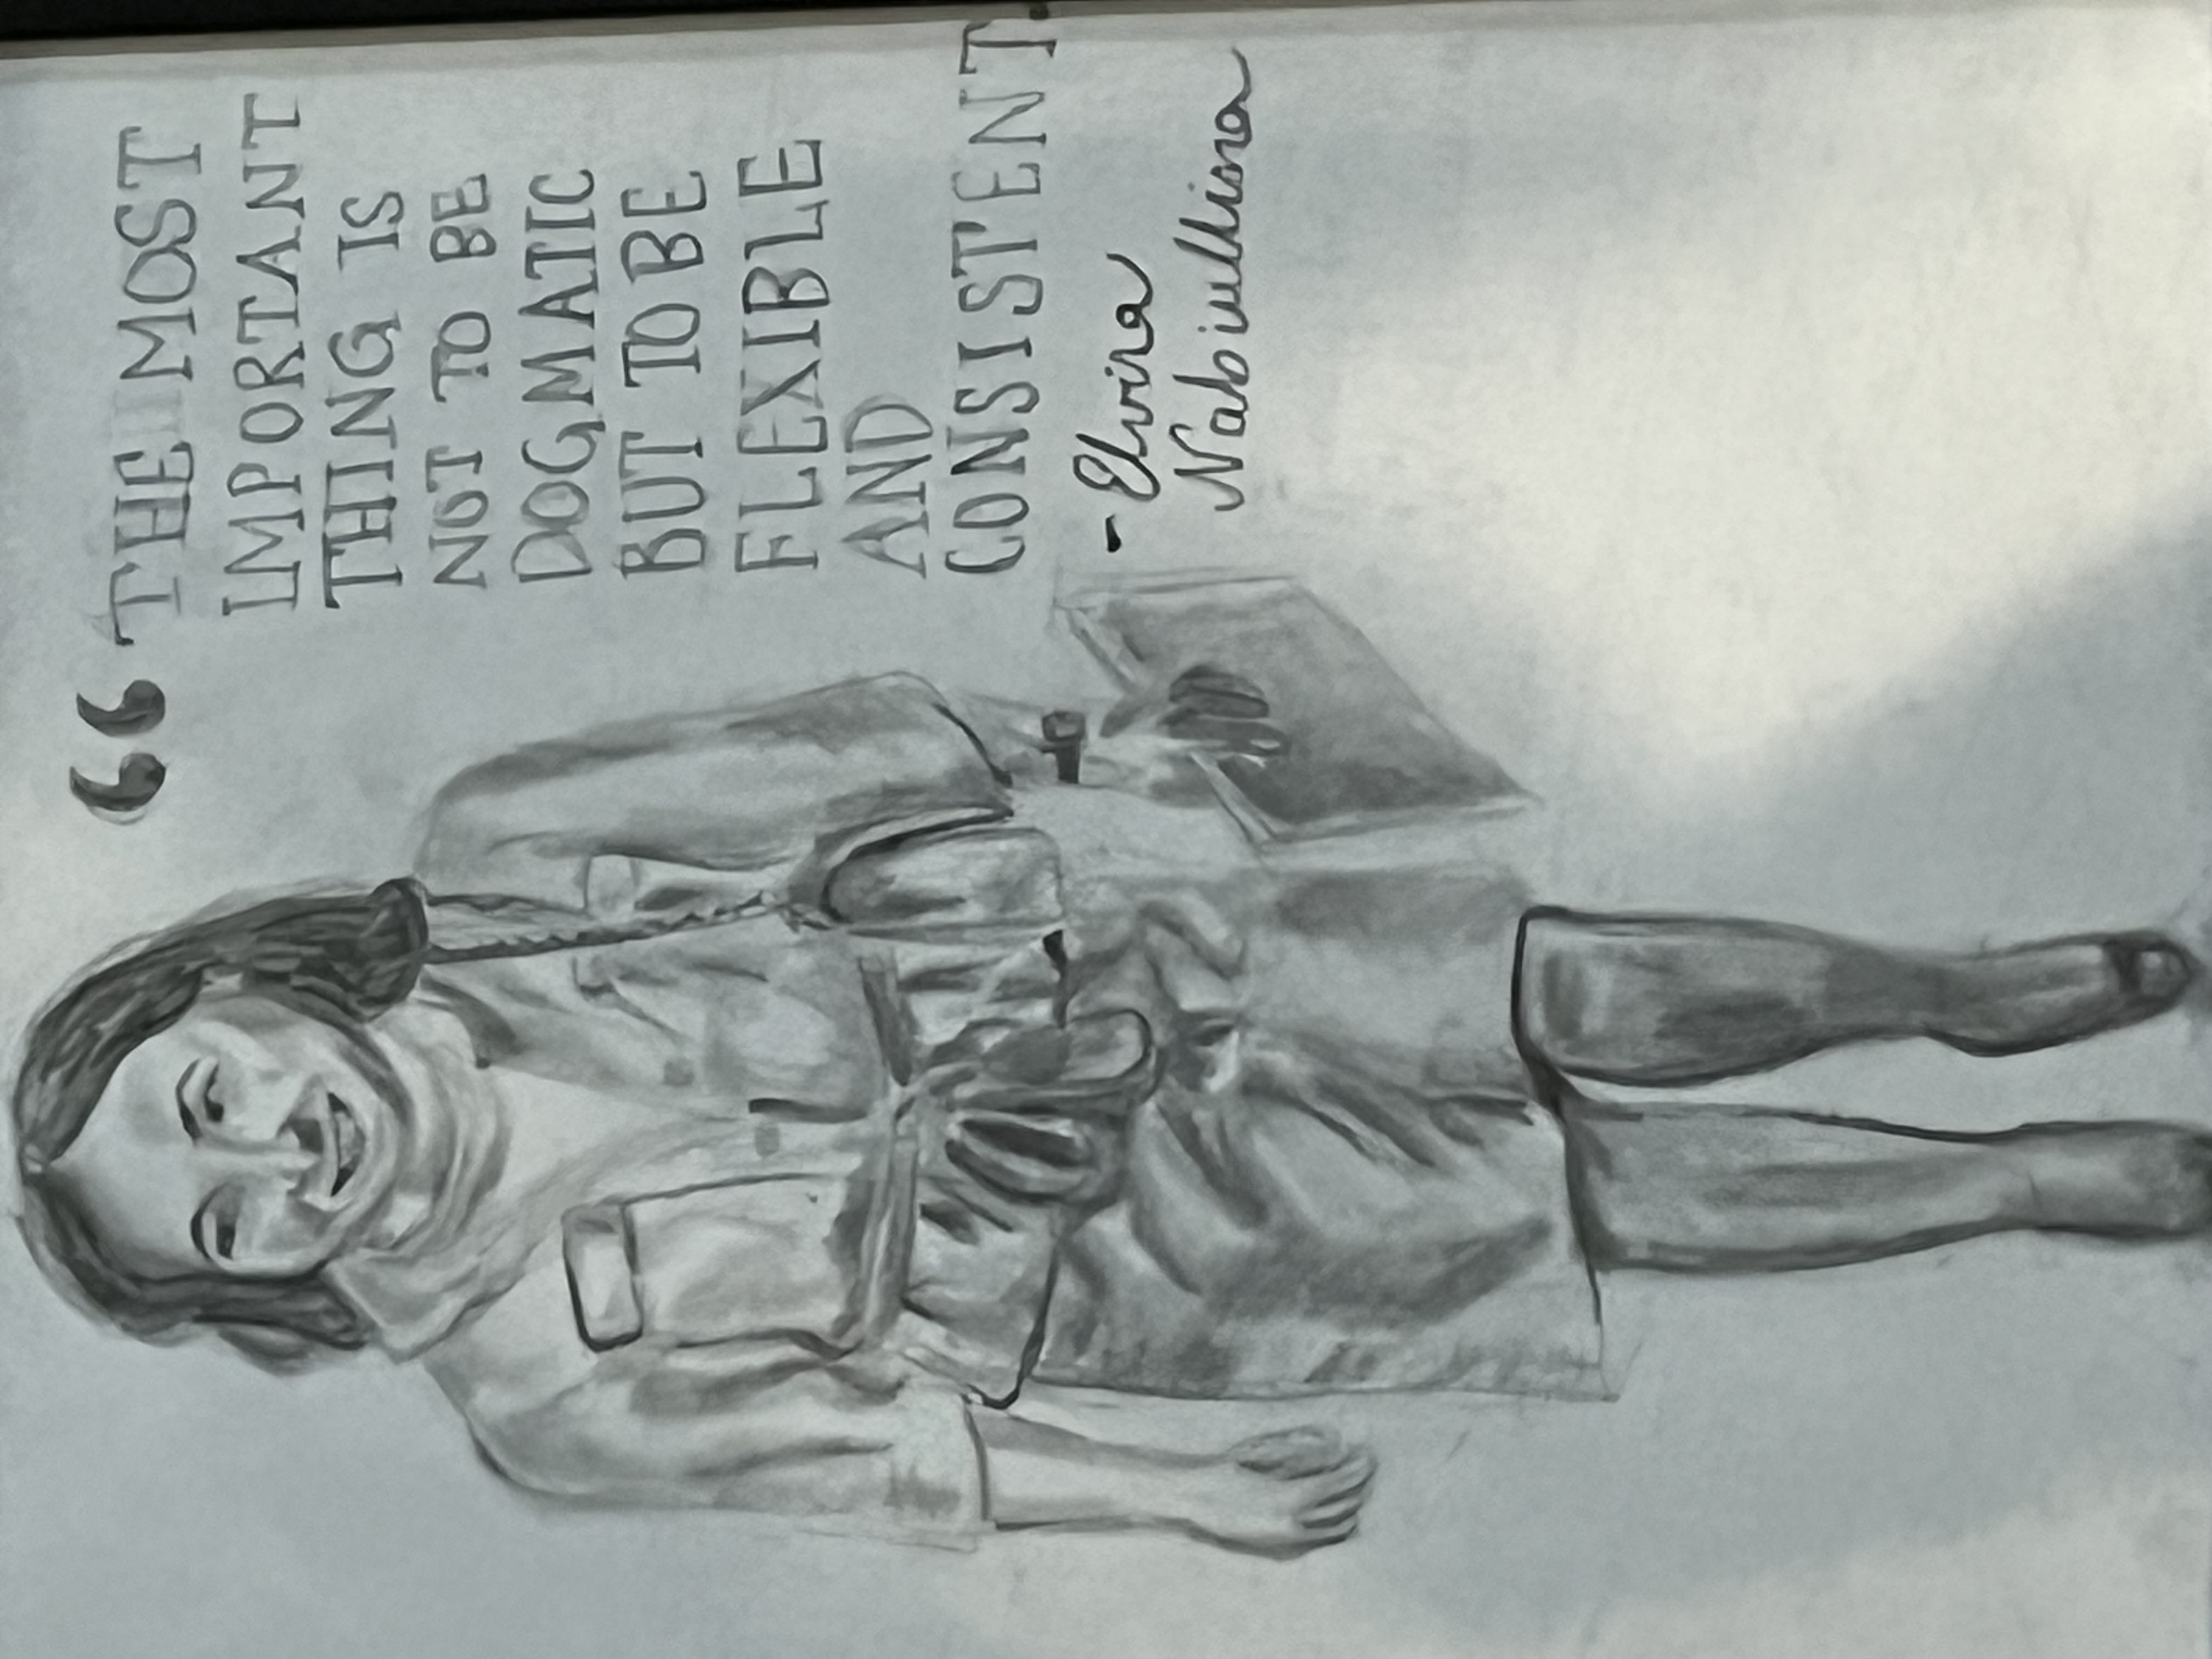 “ THE MOST
IMPORTANT
THING IS
NOT TO BE
DOGMATIC
BUT TO BE
FLEXIBLE
AND
CONSISTENT
- Elvira
Nabiullina